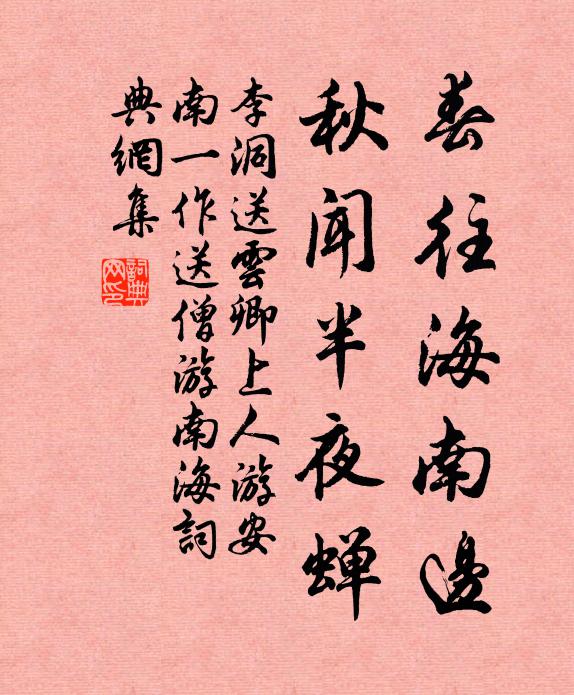 春往海南邊
秋聞半夜蟬
李洞送雲卿上人游安
南一作送僧游南海詞
典網集
詞典網印